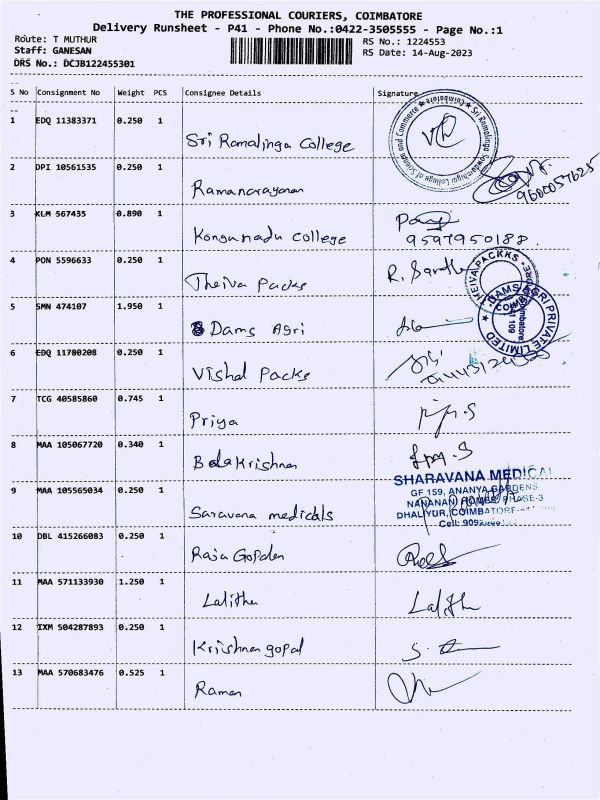 THE PROFESSIONAL COURIERS, COIMBATORE
Delivery Runsheet - P41 - Phone No.:0422-3505555 - Page No.:1
Route: T MUTHUR
RS No.: 1224553
Staff: GANESAN
RS Date: 14-Aug-2023
DRS No.: DCJB122455301
S No Consignment No Weight PCS Consignee Details Signature
1 EDQ 11383371 0.250 1
Sri Ramalinga College
2 DPI 10561535 0.250 1
Ramanarayanan
9600057625
3 KLM 567435 0.890 1
Kongunadu College
9597950188.
4 PON 5596633 0.250 1
Theiva Packs
THEIVA PACKKS
5 SMN 474107 1.950 1
Dams Agri
DAMS AGRI PRIVATE LIMITED
6 EDQ 11780208 0.250 1
Vishal Packs
7 TCG 40585860 0.745 1
Priya
8 MAA 105067720 0.340 1
BalaKrishnan
SHARAVANA MEDICAL
GF 159, ANANYA GARDENS
NANANAN HOMES PHASE-3
DHALIYUR, COIMBATORE
Cell:
9 MAA 105565034 0.250 1
Saravana medicals
10 DBL 415266083 0.250 1
Raja Gopalan
11 MAA 571133930 1.250 1
Lalitha
Lalitha
12 IXM 504287893 0.250 1
Krishnan gopal
13 MAA 570683476 0.525 1
Raman